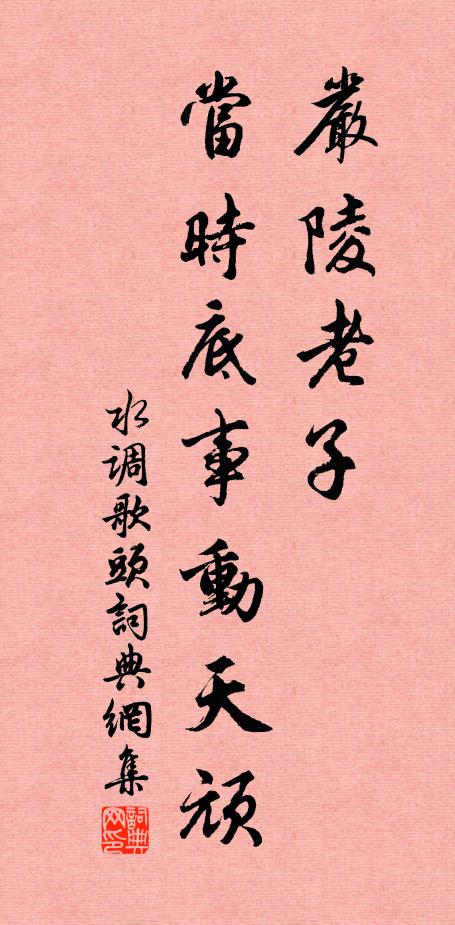 嚴陵老子
當時底事動天顏
水調歌頭詞典網集
詞典
网印